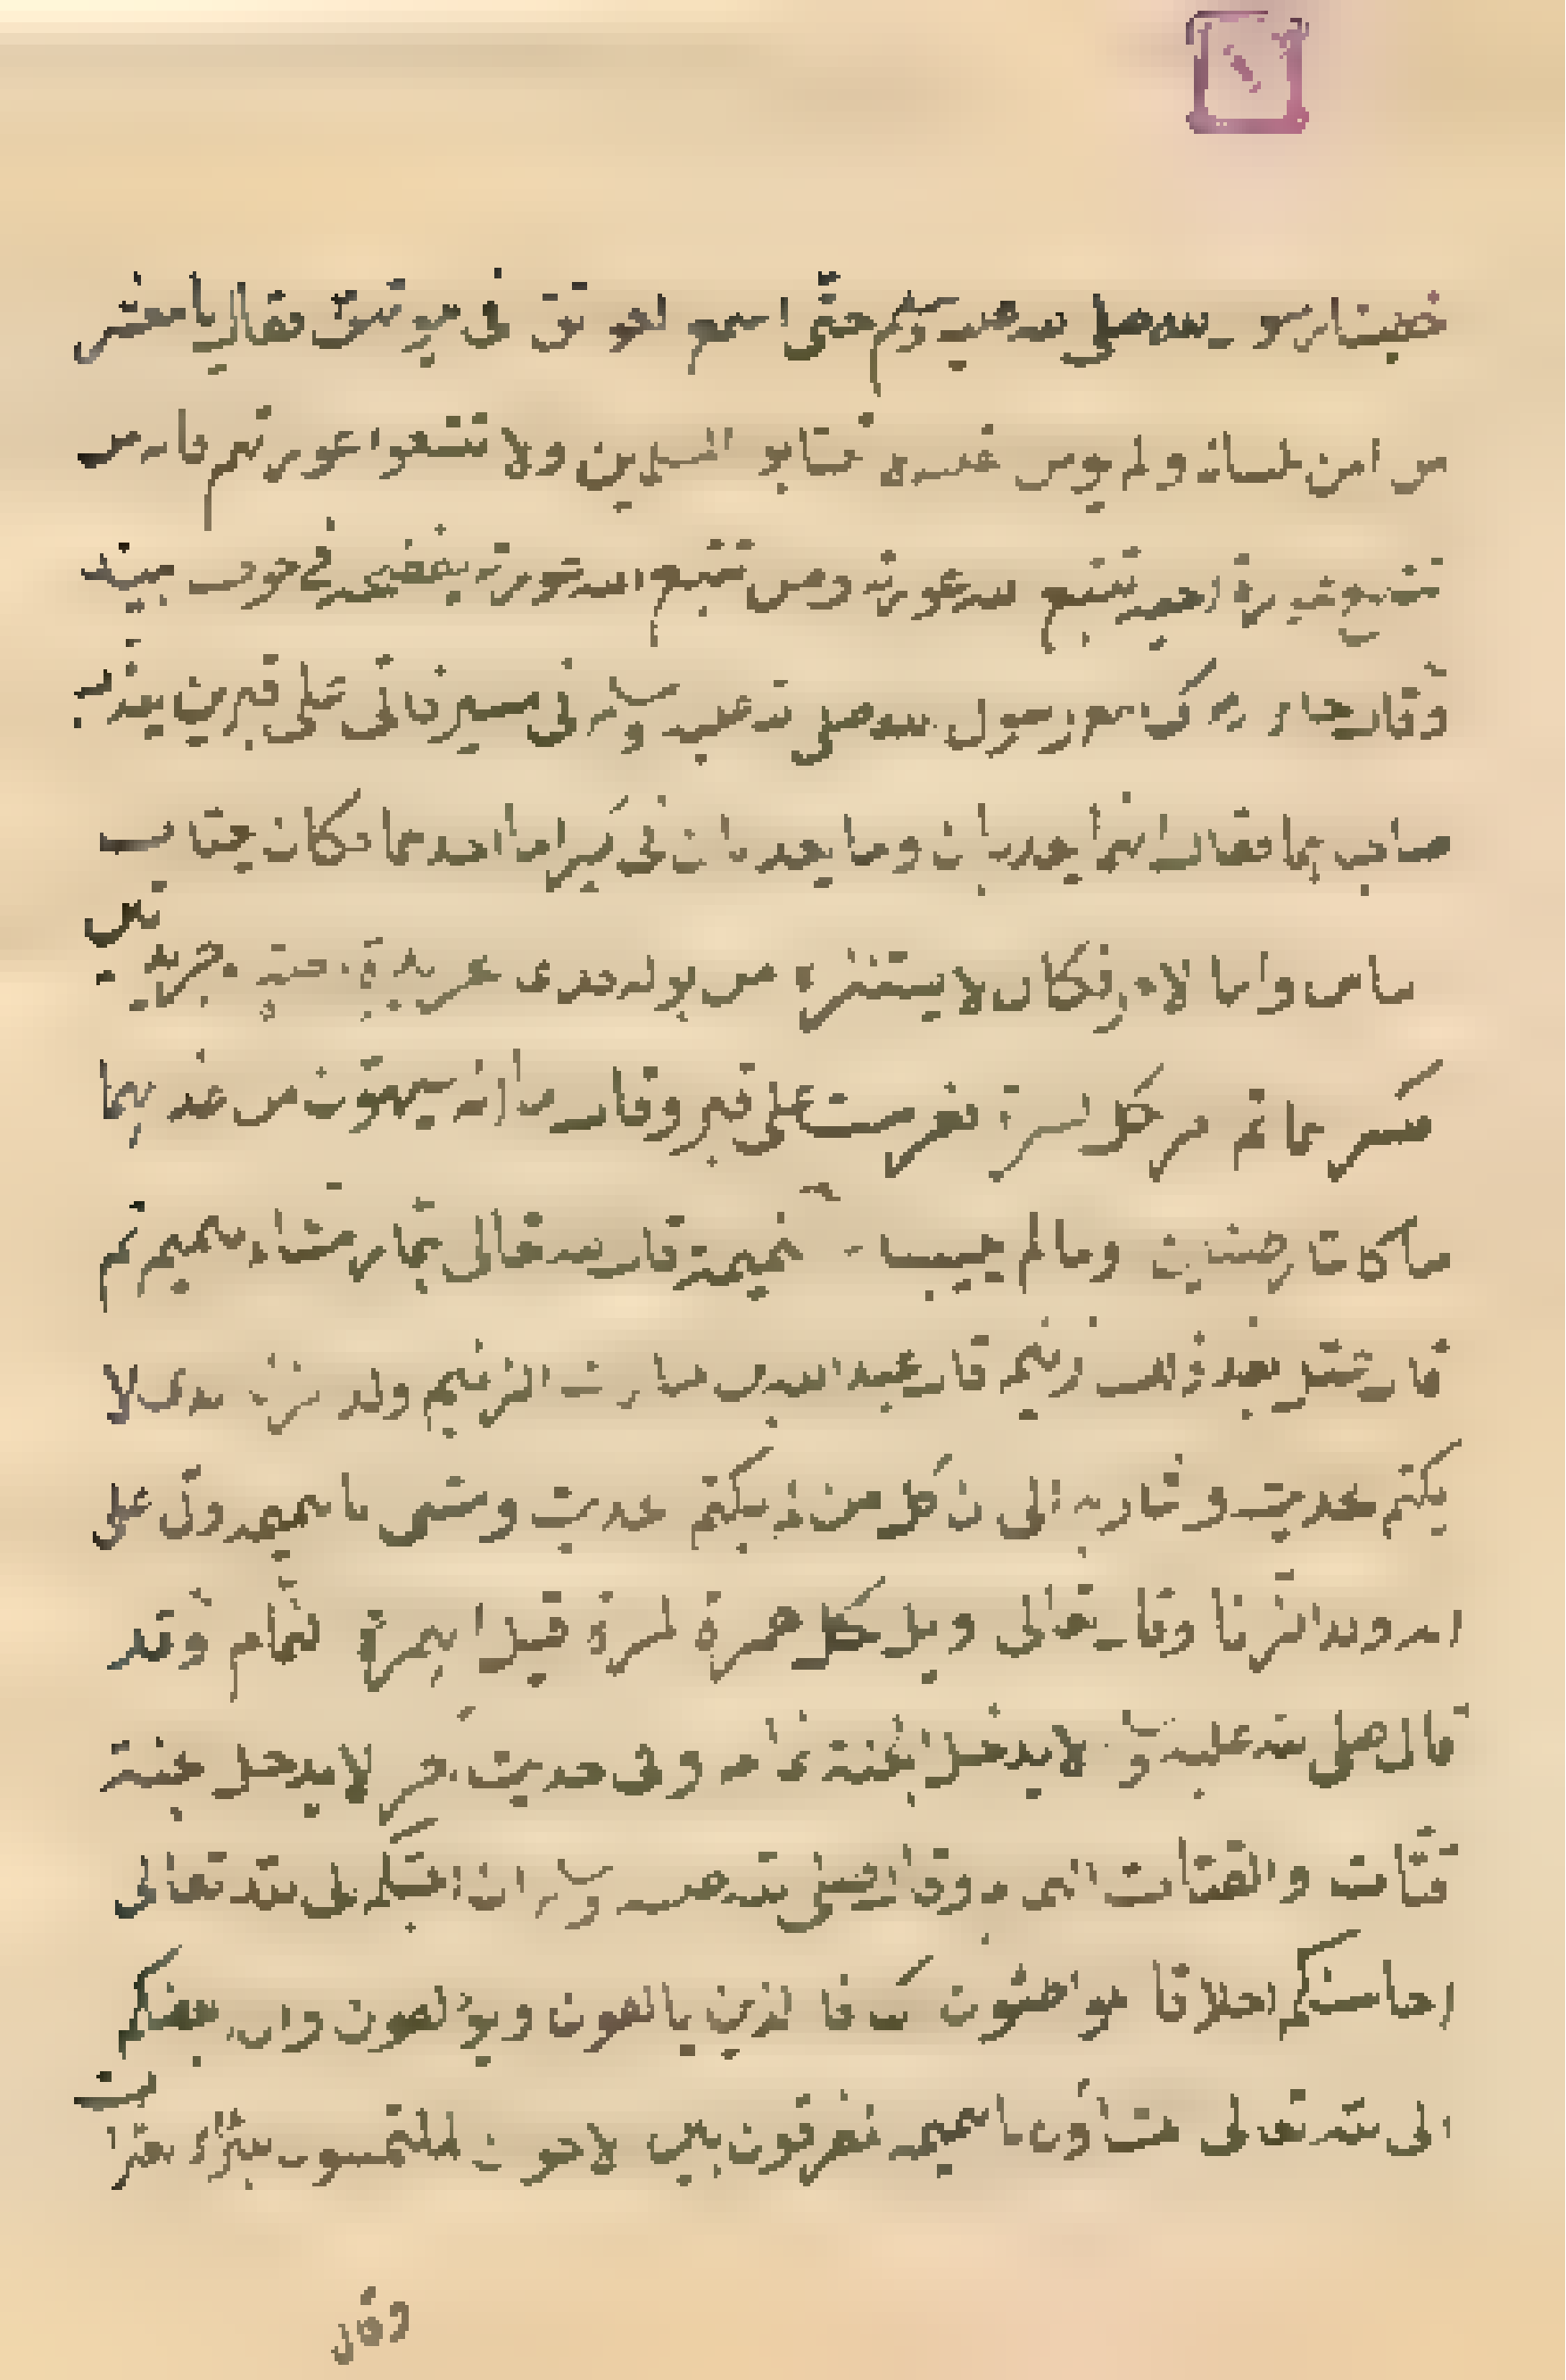 خطبنا رسول الله صلى الله عليه وسلم حتى اسمع العواتق في بيوتهن فقال يا معشر
من امن بلسانه ولم يومن قلبه لا تغتابوا المسلمين ولا تتبعوا عوراتهم فانه من
تتبع عورة اخيه تتبع الله عورته ومن تتبع الله عورته يفضحه في جوف بيته
وقال جابر كنا مع رسول الله صلى الله عليه وسلم في مسير فاتى على قبرين يعذب
صاحباهما فقال انهما يعذبان وما يعذبان في كبير اما احدهما فكان يغتاب
الناس واما الاخر فكان لا يستنزه من بوله فدعى بجريدة رطبة او جريدتين
فكسرهما ثم امر بكل كسرة فغرست على قبر وقال اما انه سيهون من عذابهما
ما كانتا رطبتين وما لم ييبسا النميمة قال الله تعالى هماز مشاء بنميم ثم
قال عتل بعد ذلك زنيم قال عبد الله بن مبارك الزنيم ولد الزنا الذى لا
يكتم الحديث واشار به الى ان كل من لم يكتم الحديث ومشى بالنميمة دل على
انه ولد الزنا وقال تعالى ويل لكل همزة لمزة قيل الهمزة النمام وقد
قال صلى الله عليه وسلم لا يدخل الجنة نمام وفى حديث اخر لا يدخل الجنة
قتات والقتات النمام وقال صلى الله عليه وسلم ان احبكم الى الله تعالى
احاسنكم اخلاقا الموطئون اكنافا الذين يالفون ويؤلفون وان ابغضكم
الى الله تعالى المشاؤن بالنميمة المفرقون بين الاخوان الملتمسون للبرآء العثرات
وقال